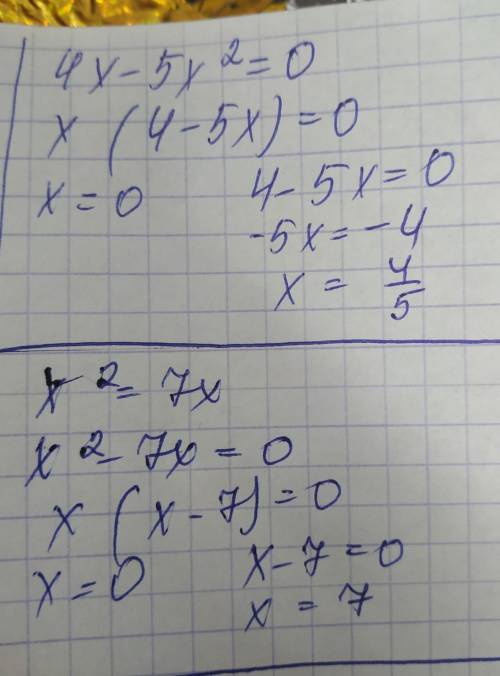 4x-5x²=0
x (4-5x)=0
x=0 4-5x=0
-5x=-4
x = 4/5
x²=7x
x²-7x=0
x (x-7)=0
x=0 x-7=0
x=7